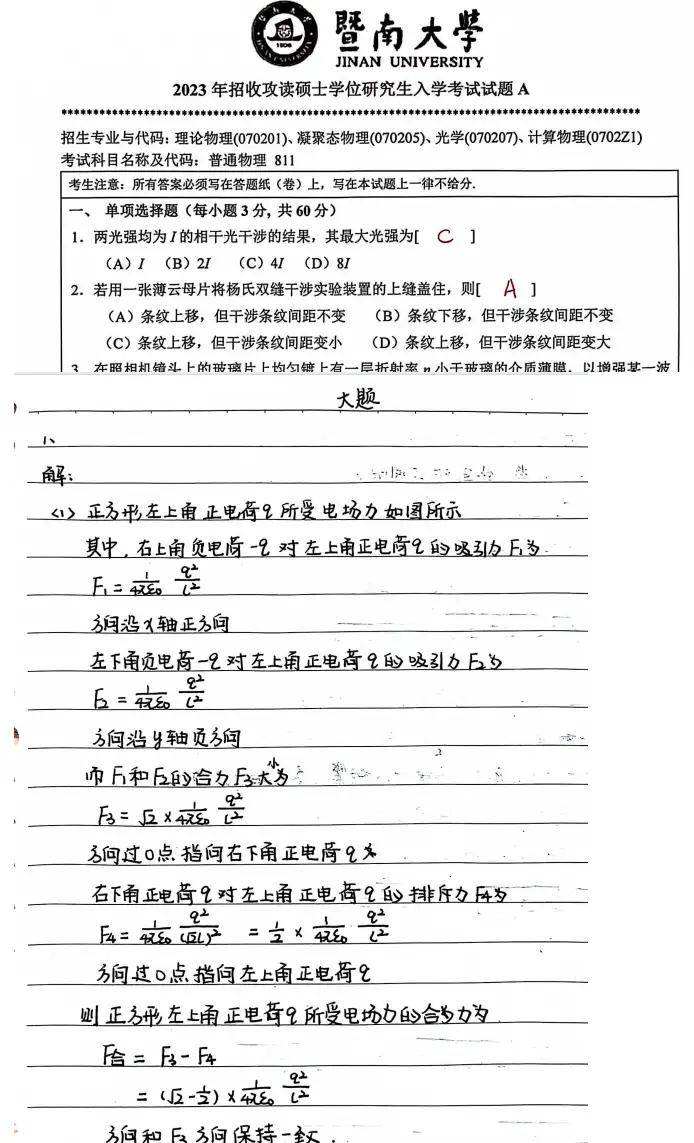 暨南大学
JINAN UNIVERSITY
2023 年招收攻读硕士学位研究生入学考试试题 A
招生专业与代码：理论物理(070201)、凝聚态物理(070205)、光学(070207)、计算物理(0702Z1)
考试科目名称及代码：普通物理 811
考生注意：所有答案必须写在答题纸（卷）上，写在本试题上一律不给分.
一、 单项选择题（每小题 3 分, 共 60 分）
1．两光强均为 I 的相干光干涉的结果，其最大光强为[ C ]
（A）I （B）2I （C）4I （D）8I
2．若用一张薄云母片将杨氏双缝干涉实验装置的上缝盖住，则[ A ]
（A）条纹上移，但干涉条纹间距不变 （B）条纹下移，但干涉条纹间距不变
（C）条纹上移，但干涉条纹间距变小 （D）条纹上移，但干涉条纹间距变大
3．在照相机镜头上的玻璃片上均匀镀上有一层折射率 n 小于玻璃的介质薄膜，以增强某一波
大题
1、
解：
<1> 正方形左上角正电荷q所受电场力如图所示
其中，右上角负电荷-q 对左上角正电荷q的吸引力F₁为
F₁ = 1/4πε₀ q²/L²
方向沿x轴正方向
左下角负电荷-q对左上角正电荷q的吸引力F₂为
F₂ = 1/4πε₀ q²/L²
方向沿y轴负方向
而F₁和F₂的合力F₃大小为
F₃ = √2 × 1/4πε₀ q²/L²
方向过O点指向右下角正电荷q
右下角正电荷q对左上角正电荷q的排斥力F₄为
F₄ = 1/4πε₀ q²/(√2L)² = 1/2 × 1/4πε₀ q²/L²
方向过O点指向左上角正电荷q
则正方形左上角正电荷q所受电场力的合力为
F合 = F₃ - F₄
= (√2 - 1/2) × 1/4πε₀ q²/L²
方向和F₃方向保持一致．